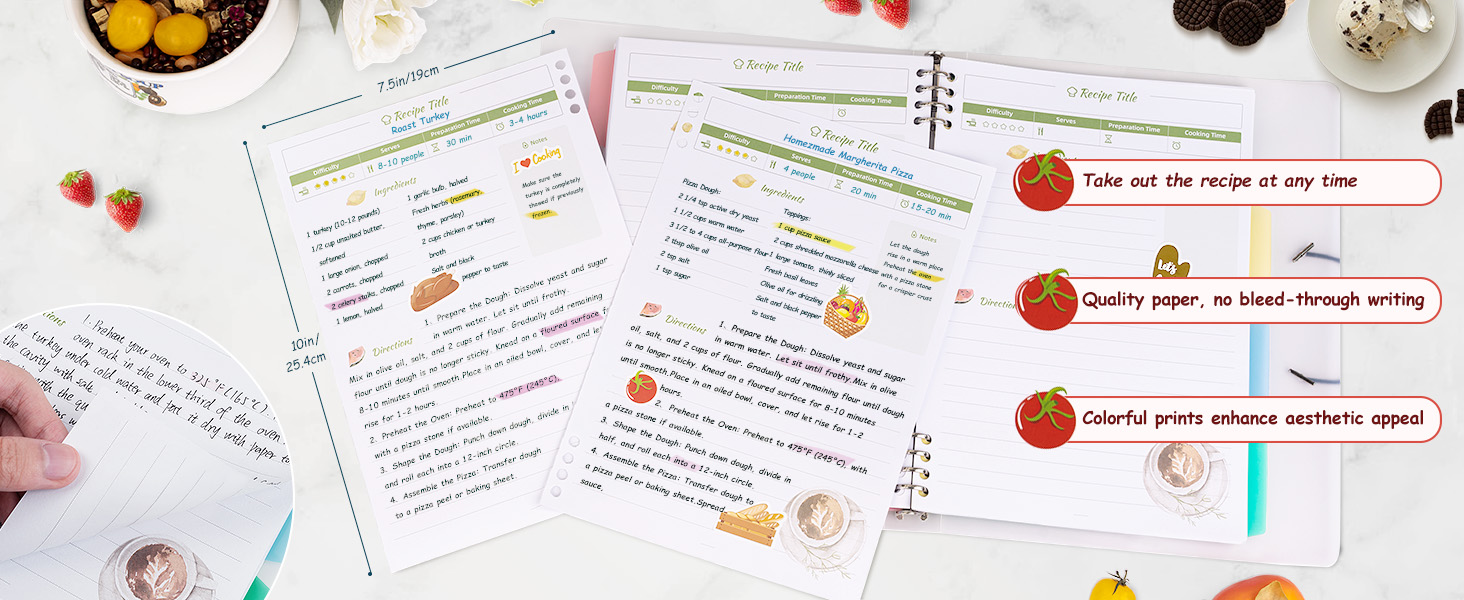 7.5in/19cm
10in/
25.4cm
Recipe Title
Roast Turkey
Difficulty
Serves
Preparation Time
Cooking Time
8-10 people
30 min
3-4 hours
Ingredients
1 turkey (10-12 pounds)
1/2 cup unsalted butter,
softened
1 large onion, chopped
2 carrots, chopped
2 celery stalks, chopped
1 lemon, halved
1 garlic bulb, halved
Fresh herbs (rosemary,
thyme, parsley)
2 cups chicken or turkey
broth
Salt and black
pepper to taste
Notes
I Cooking
Make sure the
turkey is completely
thawed if previously
frozen.
Directions
1. Prepare the Dough: Dissolve yeast and sugar
in warm water. Let sit until frothy.
Mix in olive oil, salt, and 2 cups of flour. Gradually add remaining
flour until dough is no longer sticky. Knead on a floured surface f
8-10 minutes until smooth.Place in an oiled bowl, cover, and let
rise for 1-2 hours.
2. Preheat the Oven: Preheat to 475°F (245°C),
with a pizza stone if available.
3. Shape the Dough: Punch down dough, divide in
and roll each into a 12-inch circle.
4. Assemble the Pizza: Transfer dough
to a pizza peel or baking sheet.
Recipe Title
Homezmade Margherita Pizza
Difficulty
Serves
Preparation Time
Cooking Time
4 people
20 min
15-20 min
Ingredients
Pizza Dough:
2 1/4 tsp active dry yeast
1 1/2 cups warm water
3 1/2 to 4 cups all-purpose flour
2 tbsp olive oil
2 tsp salt
1 tsp sugar
Toppings:
1 cup pizza sauce
2 cups shredded mozzarella cheese
1 large tomato, thinly sliced
Fresh basil leaves
Olive oil for drizzling
Salt and black pepper
to taste
Notes
Let the dough
rise in a warm place
Preheat the oven
with a pizza stone
for a crispier crust
Directions
1. Prepare the Dough: Dissolve yeast and sugar
in warm water. Let sit until frothy.Mix in olive
oil, salt, and 2 cups of flour. Gradually add remaining flour until dough
is no longer sticky. Knead on a floured surface for 8-10 minutes
until smooth.Place in an oiled bowl, cover, and let rise for 1-2
hours.
2. Preheat the Oven: Preheat to 475°F (245°C), with
a pizza stone if available.
3. Shape the Dough: Punch down dough, divide in
half, and roll each into a 12-inch circle.
4. Assemble the Pizza: Transfer dough to
a pizza peel or baking sheet.Spread
sauce,
Recipe Title
Difficulty
Preparation Time
Cooking Time
Recipe Title
Difficulty
Serves
Preparation Time
Cooking Time
Let's
Direction
Take out the recipe at any time
Quality paper, no bleed-through writing
Colorful prints enhance aesthetic appeal
ions
1. Preheat your oven to 325°F (165°C).
oven rack in the lower third of the oven.
he turkey under cold water and pat it dry with paper to
the cavity with salt